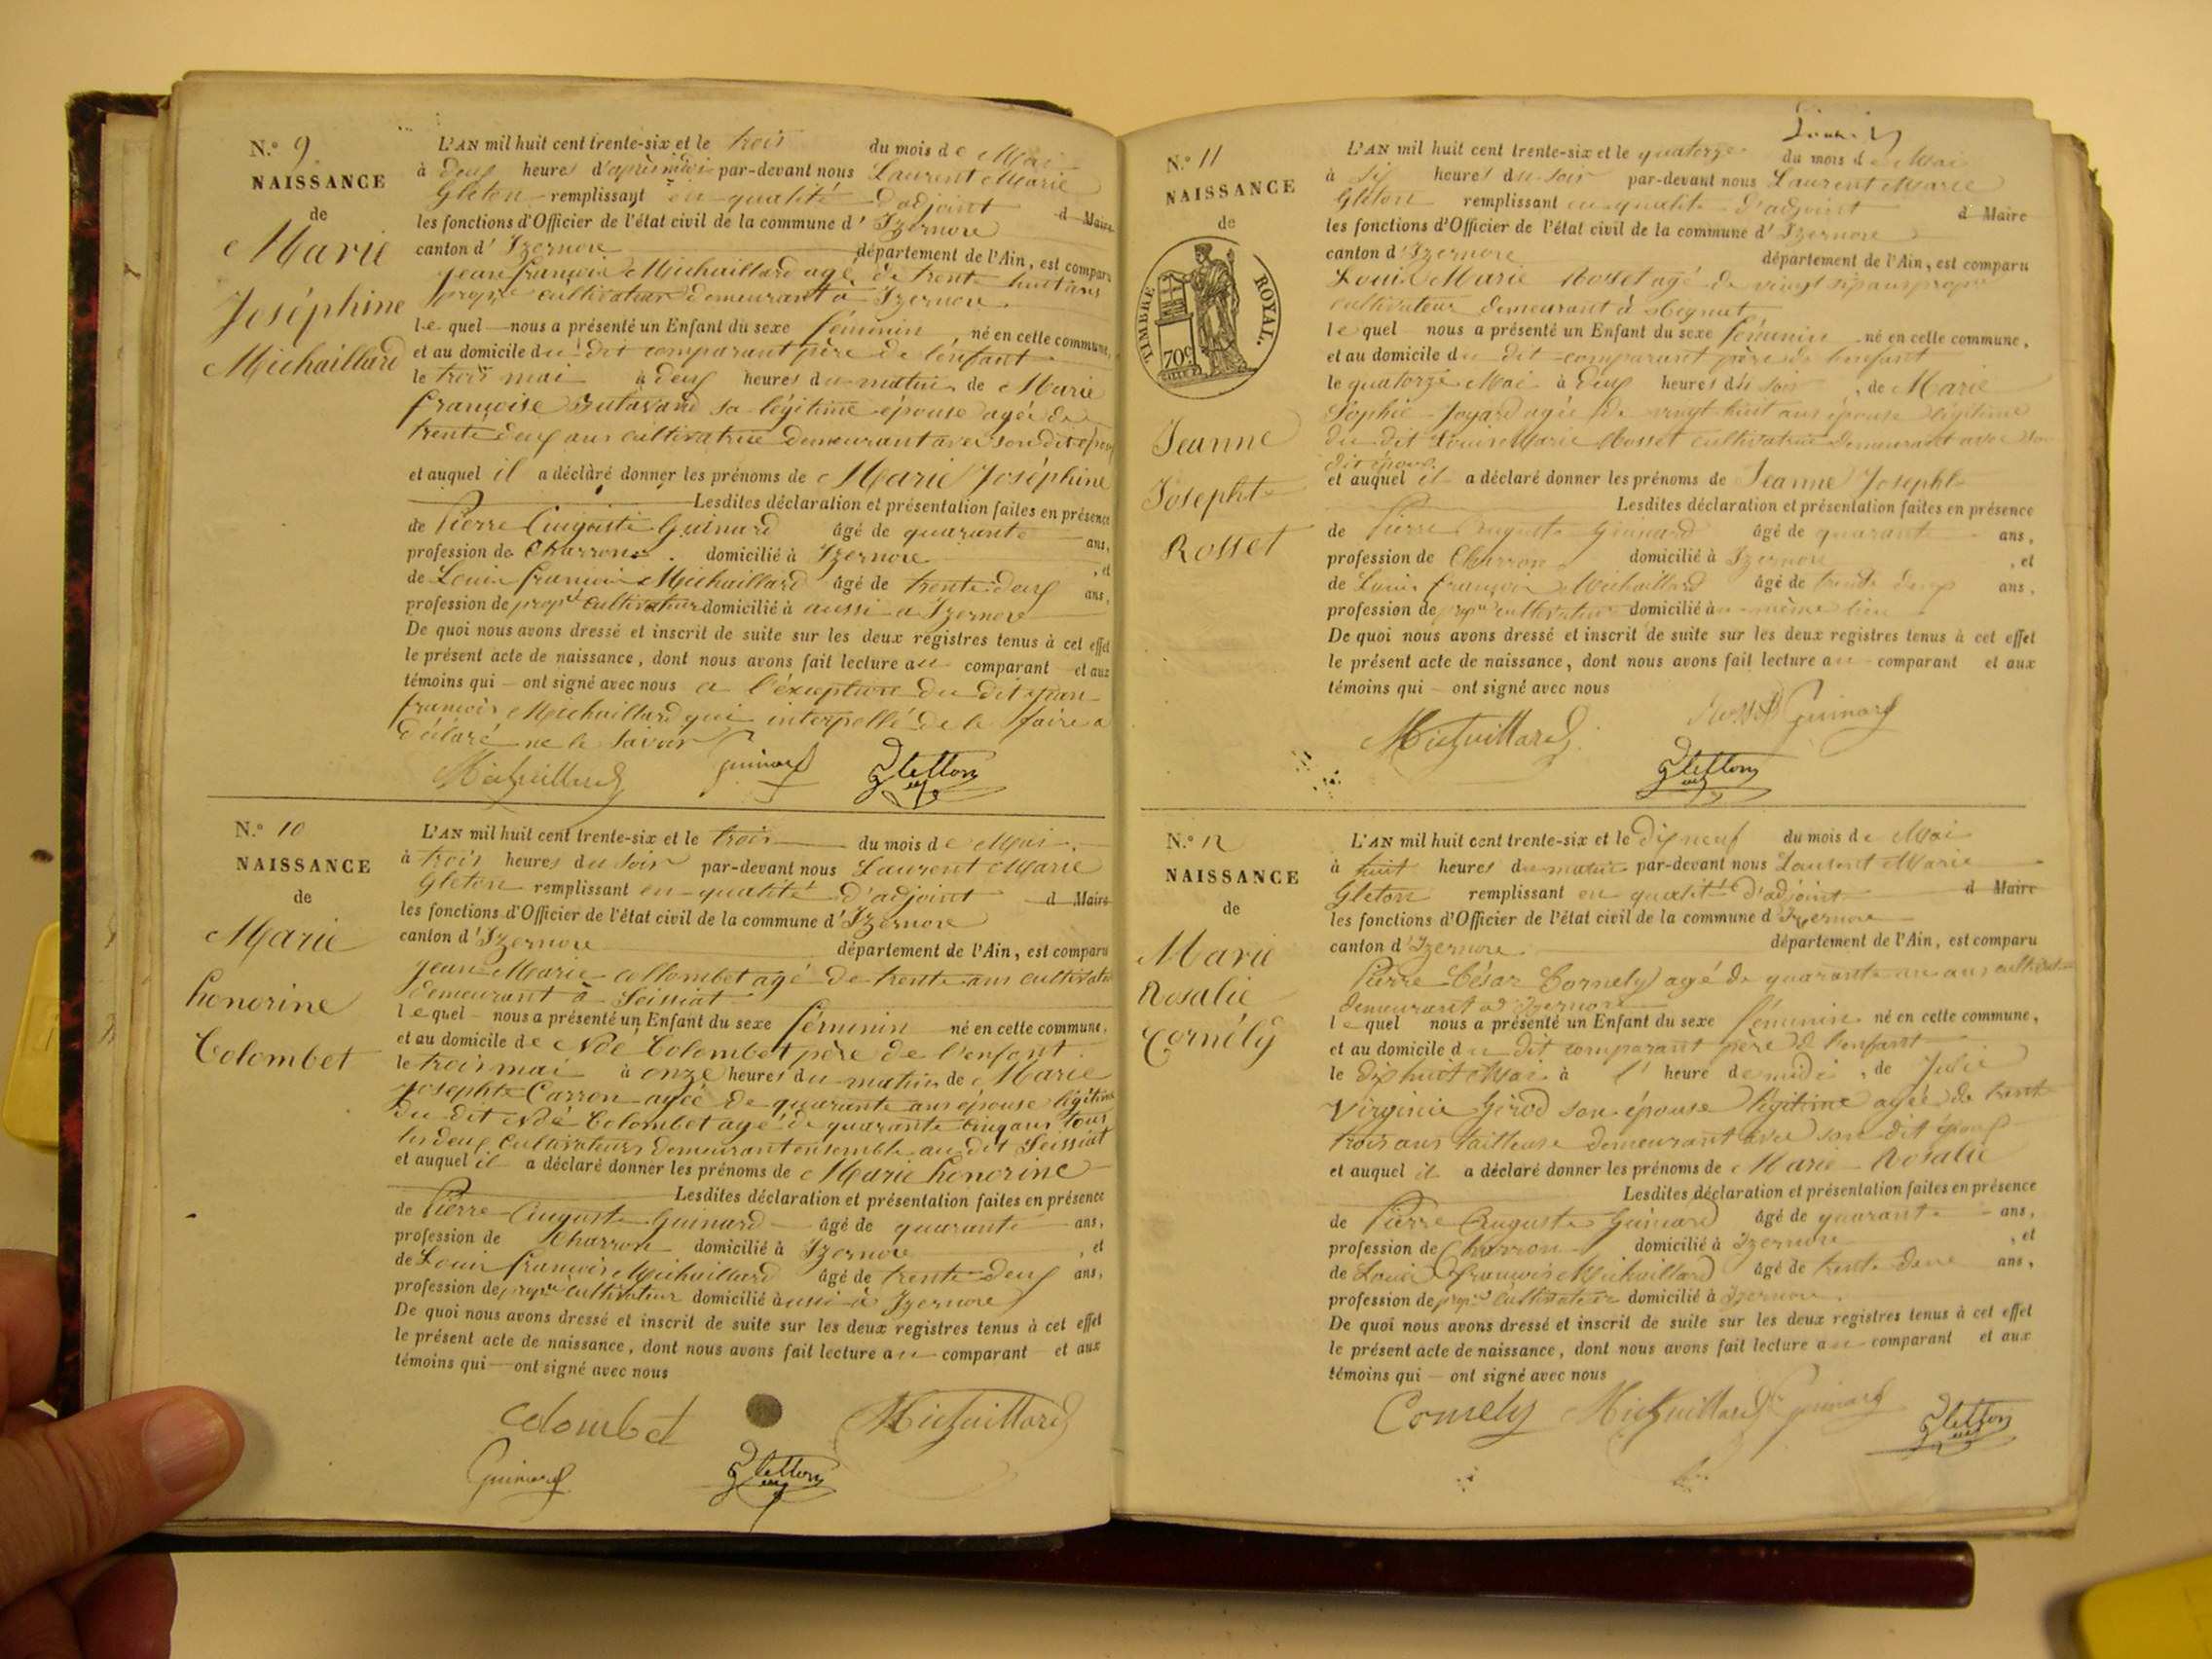 N.° 9
NAISSANCE
de
Marie
Joséphine
Michaillard
L'AN mil huit cent trente-six et le trois du mois de Mai
à deux heures d'après midi par-devant nous Laurent Marie
Gleton remplissant en qualité d'adjoint d Maire
les fonctions d'Officier de l'état civil de la commune d'Izernore
canton d'Izernore département de l'Ain, est comparu
jean françois Michaillard agé de trente huit ans
propre cultivateur demeurant à Izernore
lequel nous a présenté un Enfant du sexe féminin né en cette commune,
et au domicile du dit comparant père de l'enfant
le trois mai à deux heures du matin de Marie
françoise sa légitime épouse agée de
trente deux ans cultivatrice demeurant avec son dit époux
et auquel il a déclaré donner les prénoms de Marie Joséphine
Lesdites déclaration et présentation faites en présence
de Pierre Auguste Guinard âgé de quarante ans,
profession de Charron domicilié à Izernore , et
de Louis françois Michaillard âgé de trente deux ans,
profession de propre cultivateur domicilié à aussi a Izernore
De quoi nous avons dressé et inscrit de suite sur les deux registres tenus à cet effet
le présent acte de naissance, dont nous avons fait lecture au comparant et aux
témoins qui ont signé avec nous a l'éxception du dit jean
françois Michaillard qui interpellé de le faire a
déclaré ne le savoir
Michaillard Guinard Gletton
N.° 10
NAISSANCE
de
Marie
honorine
Colombet
L'AN mil huit cent trente-six et le trois du mois de Mai
à trois heures du soir par-devant nous Laurent Marie
Gleton remplissant en qualité d'adjoint d Maire
les fonctions d'Officier de l'état civil de la commune d'Izernore
canton d'Izernore département de l'Ain, est comparu
jean Marie collombet agé de trente ans cultivateur
demeurant à Seissiat
lequel nous a présenté un Enfant du sexe féminin né en cette commune,
et au domicile de Noé Colombet père de l'enfant
le trois mai à onze heures du matin de Marie
josephte Carron agée de quarante ans épouse légitime
du dit Noé Colombet agé de quarante cinq ans tous
les deux cultivateurs demeurant ensemble au dit Seissiat
et auquel il a déclaré donner les prénoms de Marie honorine
Lesdites déclaration et présentation faites en présence
de Pierre Auguste Guinard âgé de quarante ans,
profession de Charron domicilié à Izernore , et
de Louis françois Michaillard âgé de trente deux ans,
profession de propre cultivateur domicilié à aussi à Izernore
De quoi nous avons dressé et inscrit de suite sur les deux registres tenus à cet effet
le présent acte de naissance, dont nous avons fait lecture au comparant et aux
témoins qui ont signé avec nous
colombet Michaillard
Guinard Gletton
N.° 11
NAISSANCE
de
TIMBRE ROYAL.
70c
Jeanne
Josephte
Rosset
L'AN mil huit cent trente-six et le quatorze du mois de Mai
à six heures du soir par-devant nous Laurent Marie
Gleton remplissant en qualité d'adjoint d Maire
les fonctions d'Officier de l'état civil de la commune d'Izernore
canton d'Izernore département de l'Ain, est comparu
Louis Marie Rosset agé de vingt six ans propre
cultivateur demeurant à
lequel nous a présenté un Enfant du sexe féminin né en cette commune,
et au domicile du dit comparant père de l'enfant
le quatorze Mai à deux heures du soir , de Marie
Sophie Joyard agée de vingt huit ans épouse légitime
du dit Louis Marie Rosset cultivatrice demeurant avec son
dit époux
et auquel il a déclaré donner les prénoms de Jeanne Josephte
Lesdites déclaration et présentation faites en présence
de Pierre Auguste Guinard âgé de quarante ans,
profession de Charron domicilié à Izernore , et
de Louis françois Michaillard âgé de trente deux ans,
profession de propre cultivateur domicilié à même lieu
De quoi nous avons dressé et inscrit de suite sur les deux registres tenus à cet effet
le présent acte de naissance, dont nous avons fait lecture au comparant et aux
témoins qui ont signé avec nous
Michaillard Rosset Guinard
Gletton
N.° 12
NAISSANCE
de
Marie
Rosalie
Cornély
L'AN mil huit cent trente-six et le dix neuf du mois de Mai
à huit heures du matin par-devant nous Laurent Marie
Gleton remplissant en qualité d'adjoint d Maire
les fonctions d'Officier de l'état civil de la commune d'Izernore
canton d'Izernore département de l'Ain, est comparu
Pierre César Cornely agé de quarante un ans cultivateur
demeurant à Izernore
lequel nous a présenté un Enfant du sexe féminin né en cette commune,
et au domicile du dit comparant père de l'enfant
le dix huit Mai à l' heure de midi , de Julie
Virginie Girod son épouse légitime agée de trente
trois ans tailleuse demeurant avec son dit époux
et auquel il a déclaré donner les prénoms de Marie Rosalie
Lesdites déclaration et présentation faites en présence
de Pierre Auguste Guinard âgé de quarante ans,
profession de Charron domicilié à Izernore , et
de Louis françois Michaillard âgé de trente deux ans,
profession de propre cultivateur domicilié à Izernore
De quoi nous avons dressé et inscrit de suite sur les deux registres tenus à cet effet
le présent acte de naissance, dont nous avons fait lecture au comparant et aux
témoins qui ont signé avec nous
Cornely Michaillard Guinard Gletton